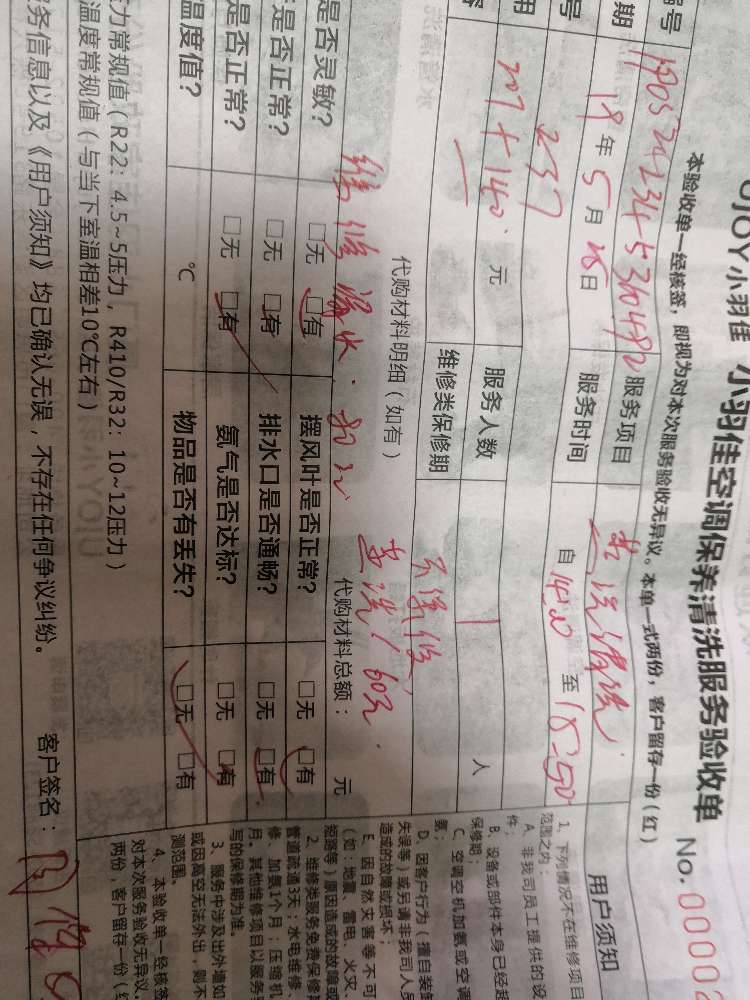 UJOY小羽佳 小羽佳空调保养清洗服务验收单
No.00002
本验收单一经核签，即视为对本次服务验收无异议。本单一式两份，客户留存一份（红）
编号
服务项目
用户须知
期 19年5月 日
服务时间 自 至
号 237
用 207+140. 元
服务人数 1 人
维修类保修期
代购材料明细（如有）
维修漏水.
清洗160元.
代购材料总额： 元
是否灵敏？ □无 □有 摆风叶是否正常？ □无 □有
是否正常？ □无 □有 排水口是否通畅？ □无 □有
是否正常？ □无 □有 氨气是否达标？ □无 □有
温度值？ ℃ 物品是否有丢失？ □无 □有
力常规值（R22：4.5~5压力，R410/R32：10~12压力）
温度常规值（与当下室温相差10℃左右）
务信息以及《用户须知》均已确认无误，不存在任何争议纠纷。
客户签名：
1、下列情况不在维修项目
范围之内：
A、非我司员工提供的设
件；
B、设备或部件本身已经超
保修期；
C、空调空机加氨或空调
氨；
D、因客户行为（擅自装卸
失误等）或另请非我司人员
造成的故障或损坏；
E、因自然灾害等不可
（如：地震、雷电、火灾、
短路等）原因造成的故障或
2、维修类服务免费保修期
管道疏通3天；水电维修、
修、加氨1个月；压缩机
月。其他维修项目以服务
写的保修期为准。
3、服务中涉及出外墙如
或因高空无法外出，则不
测范围。
4、本验收单一经核签
对本次服务验收无异议。
两份，客户留存一份（红